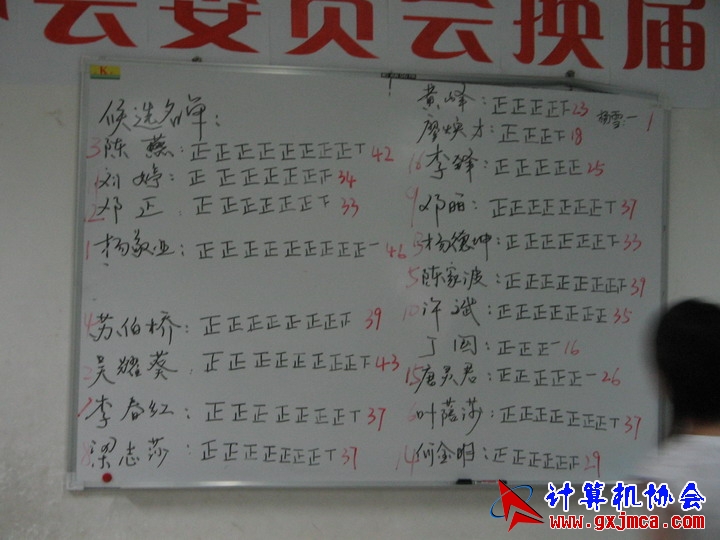 会委员会换届
候选名单:
3 陈燕: 正正正正正正正正T 42
刘婷: 正正正正正正 34
12 邓正 正正正正正正 33
1 杨敬业: 正正正正正正正正正一 46
4 苏伯桥: 正正正正正正正 39
2 吴耀葵 正正正正正正正正 43
7 李春红: 正正正正正正正T 37
梁志莎: 正正正正正正正T 37
黄峰: 正正正正 23
杨雪: 一 1
廖焕才: 正正正 18
16 李锋: 正正正正正 25
9 邓丽: 正正正正正正正T 37
杨德坤: 正正正正正正 33
5 陈家波: 正正正正正正正 39
10 许斌: 正正正正正正正 35
丁园: 正正正一 16
15 唐灵君: 正正正正正一 26
6 叶蔭莎: 正正正正正正正T 37
14 何金明: 正正正正正 29
计算机协会
www.gxjmca.com